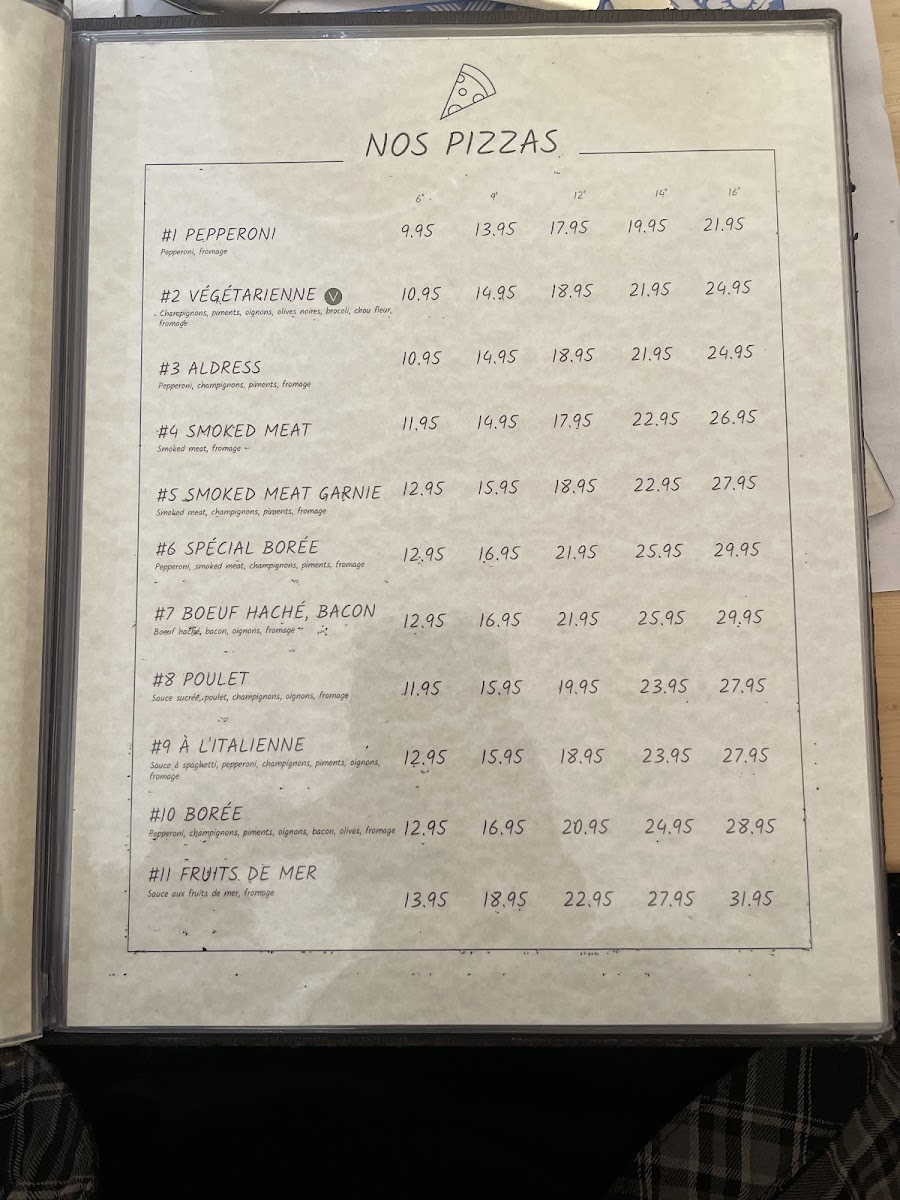 NOS PIZZAS
6" 9" 12" 14" 16"
#1 PEPPERONI 9.95 13.95 17.95 19.95 21.95
Pepperoni, fromage
#2 VÉGÉTARIENNE V 10.95 14.95 18.95 21.95 24.95
Champignons, piments, oignons, olives noires, brocoli, chou fleur,
fromage
#3 ALDRESS 10.95 14.95 18.95 21.95 24.95
Pepperoni, champignons, piments, fromage
#4 SMOKED MEAT 11.95 14.95 17.95 22.95 26.95
Smoked meat, fromage
#5 SMOKED MEAT GARNIE 12.95 15.95 18.95 22.95 27.95
Smoked meat, champignons, piments, fromage
#6 SPÉCIAL BORÉE 12.95 16.95 21.95 25.95 29.95
Pepperoni, smoked meat, champignons, piments, fromage
#7 BOEUF HACHÉ, BACON 12.95 16.95 21.95 25.95 29.95
Boeuf haché, bacon, oignons, fromage
#8 POULET 11.95 15.95 19.95 23.95 27.95
Sauce sucrée, poulet, champignons, oignons, fromage
#9 À L'ITALIENNE 12.95 15.95 18.95 23.95 27.95
Sauce à spaghetti, pepperoni, champignons, piments, oignons,
fromage
#10 BORÉE 12.95 16.95 20.95 24.95 28.95
Pepperoni, champignons, piments, oignons, bacon, olives, fromage
#11 FRUITS DE MER 13.95 18.95 22.95 27.95 31.95
Sauce aux fruits de mer, fromage